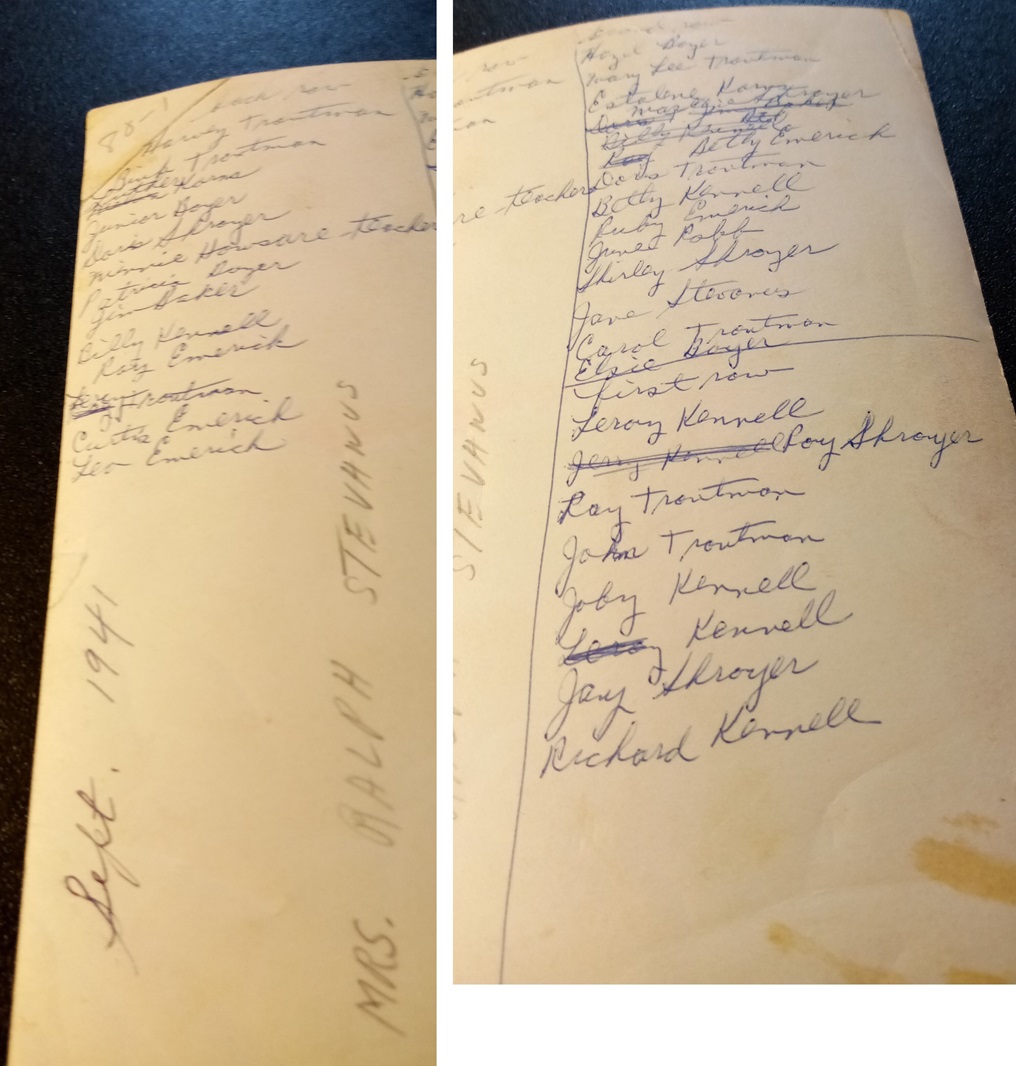 88-1 back row
Harvey Troutman
Troutman
Karns
Junior Boyer
Doris Shroyer
Minnie Howsare teacher
Patricia Boyer
Jim Baker
Billy Kennell
Roy Emerick
Troutman
Curtis Emerick
Leo Emerick
Sept. 1941
MRS. RALPH STEVANUS
row
Hazel Boyer
Mary Lee Troutman
Estalene Karns
Shroyer
Betty Emerick
Doris Troutman
Betty Kennell
Ruby Emerick
Junet Robb
Shirley Shroyer
Jane Stevanus
Carol Troutman
Elsie Boyer
first row
Leroy Kennell
Jerry Kennell Roy Shroyer
Ray Troutman
John Troutman
Joby Kennell
Leroy Kennell
Jay Shroyer
Richard Kennell